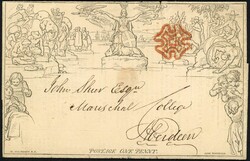 John Shier Esqr
Marischal College
Aberdeen
POSTAGE ONE PENNY.